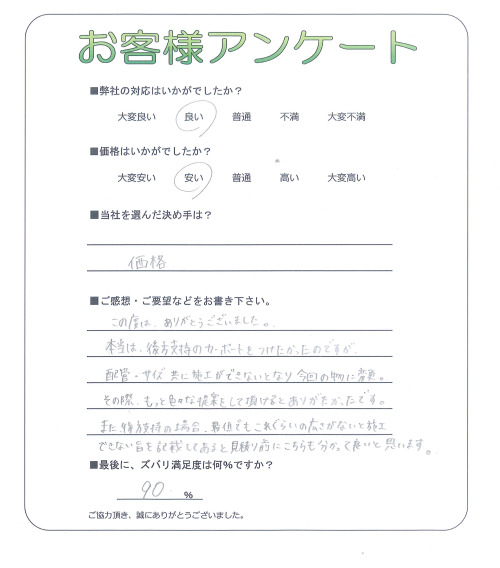 お客様アンケート
■弊社の対応はいかがでしたか？
大変良い 良い 普通 不満 大変不満
■価格はいかがでしたか？
大変安い 安い 普通 高い 大変高い
■当社を選んだ決め手は？
価格
■ご感想・ご要望などをお書き下さい。
この度は、ありがとうございました。
本当は、後方支持のカーポートをつけたかったのですが、
配管・サイズ共に施工ができないとなり今回の物に変更。
その際、もっと色々な提案をして頂けるとありがたかったです。
また後方支持の場合、最低でもこれぐらいの広さがないと施工
できない旨を記載してあると見積り前にこちらも分かって良いと思います。
■最後に、ズバリ満足度は何％ですか？
90 ％
ご協力頂き、誠にありがとうございました。